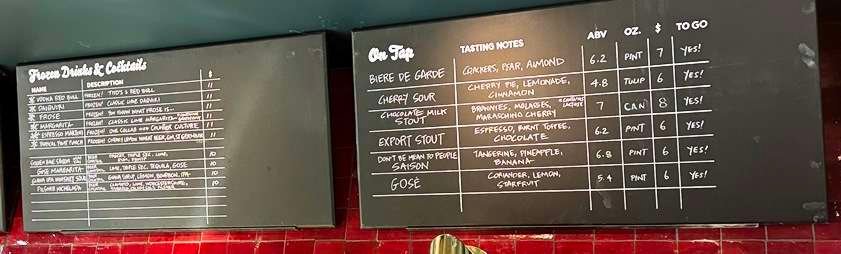 Frozen Drinks & Cocktails
NAME DESCRIPTION $
VODKA RED BULL FROZEN! TITO'S & RED BULL 11
DAIQUIRI FROZEN! CLASSIC LIME DAIQUIRI 11
FROSE FROZEN! YOU KNOW WHAT FROSE IS... 11
MARGARITA FROZEN! CLASSIC LIME MARGARITA 11
ESPRESSO MARTINI FROZEN! COLLAB WITH COUNTER CULTURE 11
TROPICAL FRUIT PUNCH FROZEN! 11
10
GOSE MARGARITA LIME, TRIPLE SEC, TEQUILA, GOSE 10
SYRUP, LEMON, BOURBON, IPA 10
PILSNER MICHELADA CLAMATO, LIME, WORCESTERSHIRE, 10
On Tap TASTING NOTES ABV OZ. $ TO GO
BIERE DE GARDE CRACKERS, PEAR, ALMOND 6.2 PINT 7 YES!
CHERRY SOUR CHERRY PIE, LEMONADE, 4.8 TULIP 6 YES!
CINNAMON
CHOCOLATE MILK BROWNIES, MOLASSES, *CONTAINS LACTOSE 7 CAN 8 YES!
STOUT MARASCHINO CHERRY
EXPORT STOUT ESPRESSO, BURNT TOFFEE, 6.2 PINT 6 YES!
CHOCOLATE
DON'T BE MEAN TO PEOPLE TANGERINE, PINEAPPLE, 6.8 PINT 6 YES!
SAISON BANANA
GOSE CORIANDER, LEMON, 5.4 PINT 6 YES!
STARFRUIT